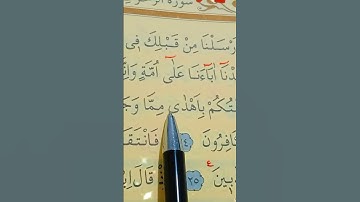 سُورَةُ الزُّخْرُفِ
رْسَلْنَا مِنْ قَبْلِكَ فِى
دْنَٓا اٰبَٓاءَنَا عَلٰٓى اُمَّةٍ وَاِنَّ
تُكُمْ بِاَهْدٰى مِمَّا وَجَ
افِرُونَ ٢٤ فَانْتَقَ
بِينَ ٢٥ ذْ قَالَ اِبْ